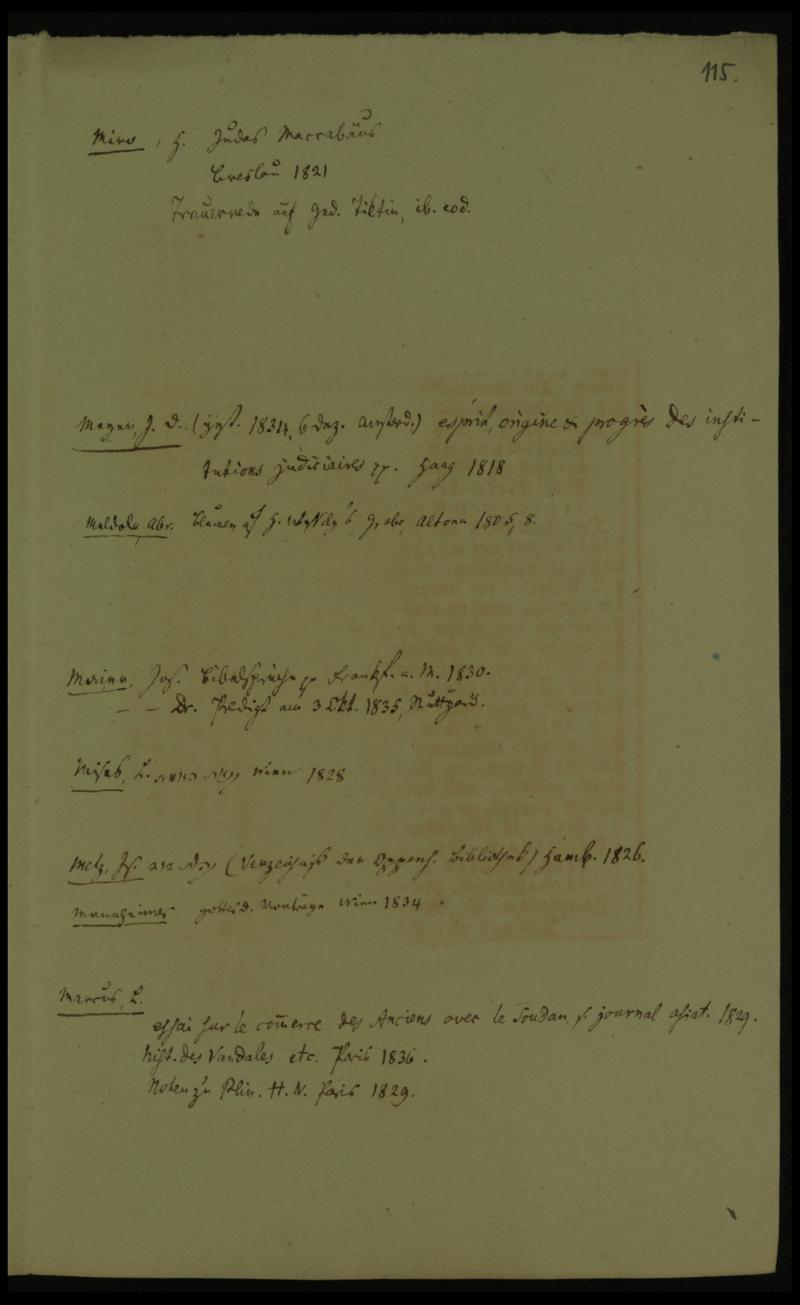 115.
Miro, H. Judas Maccabäus
Breslau 1821
Trauerrede auf Ged. Tiktin, ib. eod.
Meyer, J. D. (gest. 1834, 6 Dez. Amsterd.) esprit, origine & progrès des insti-
tutions judiciaires pp. Haag 1818
Meldola Abr. Blumen auf H. Grabe, Altona 1805, 8.
Maier, Jos. Bibelsprüche pp Frankf. a. M. 1830.
— — Dr. Predigt am 3 Okt. 1835, Stuttgard.
Mises, L. Wien 1828
Metz, Is. (Verzeichniß der Oppenh. Bibliothek) Hamb. 1826.
Mannheimer gottesd. Vorträge Wien 1834.
Marcus, L.
essai sur le comerce des Anciens avec le Soudan, s. journal asiat. 1829.
hist. des Vandales etc. Paris 1836.
Noten zu Plin. H. N. Paris 1829.